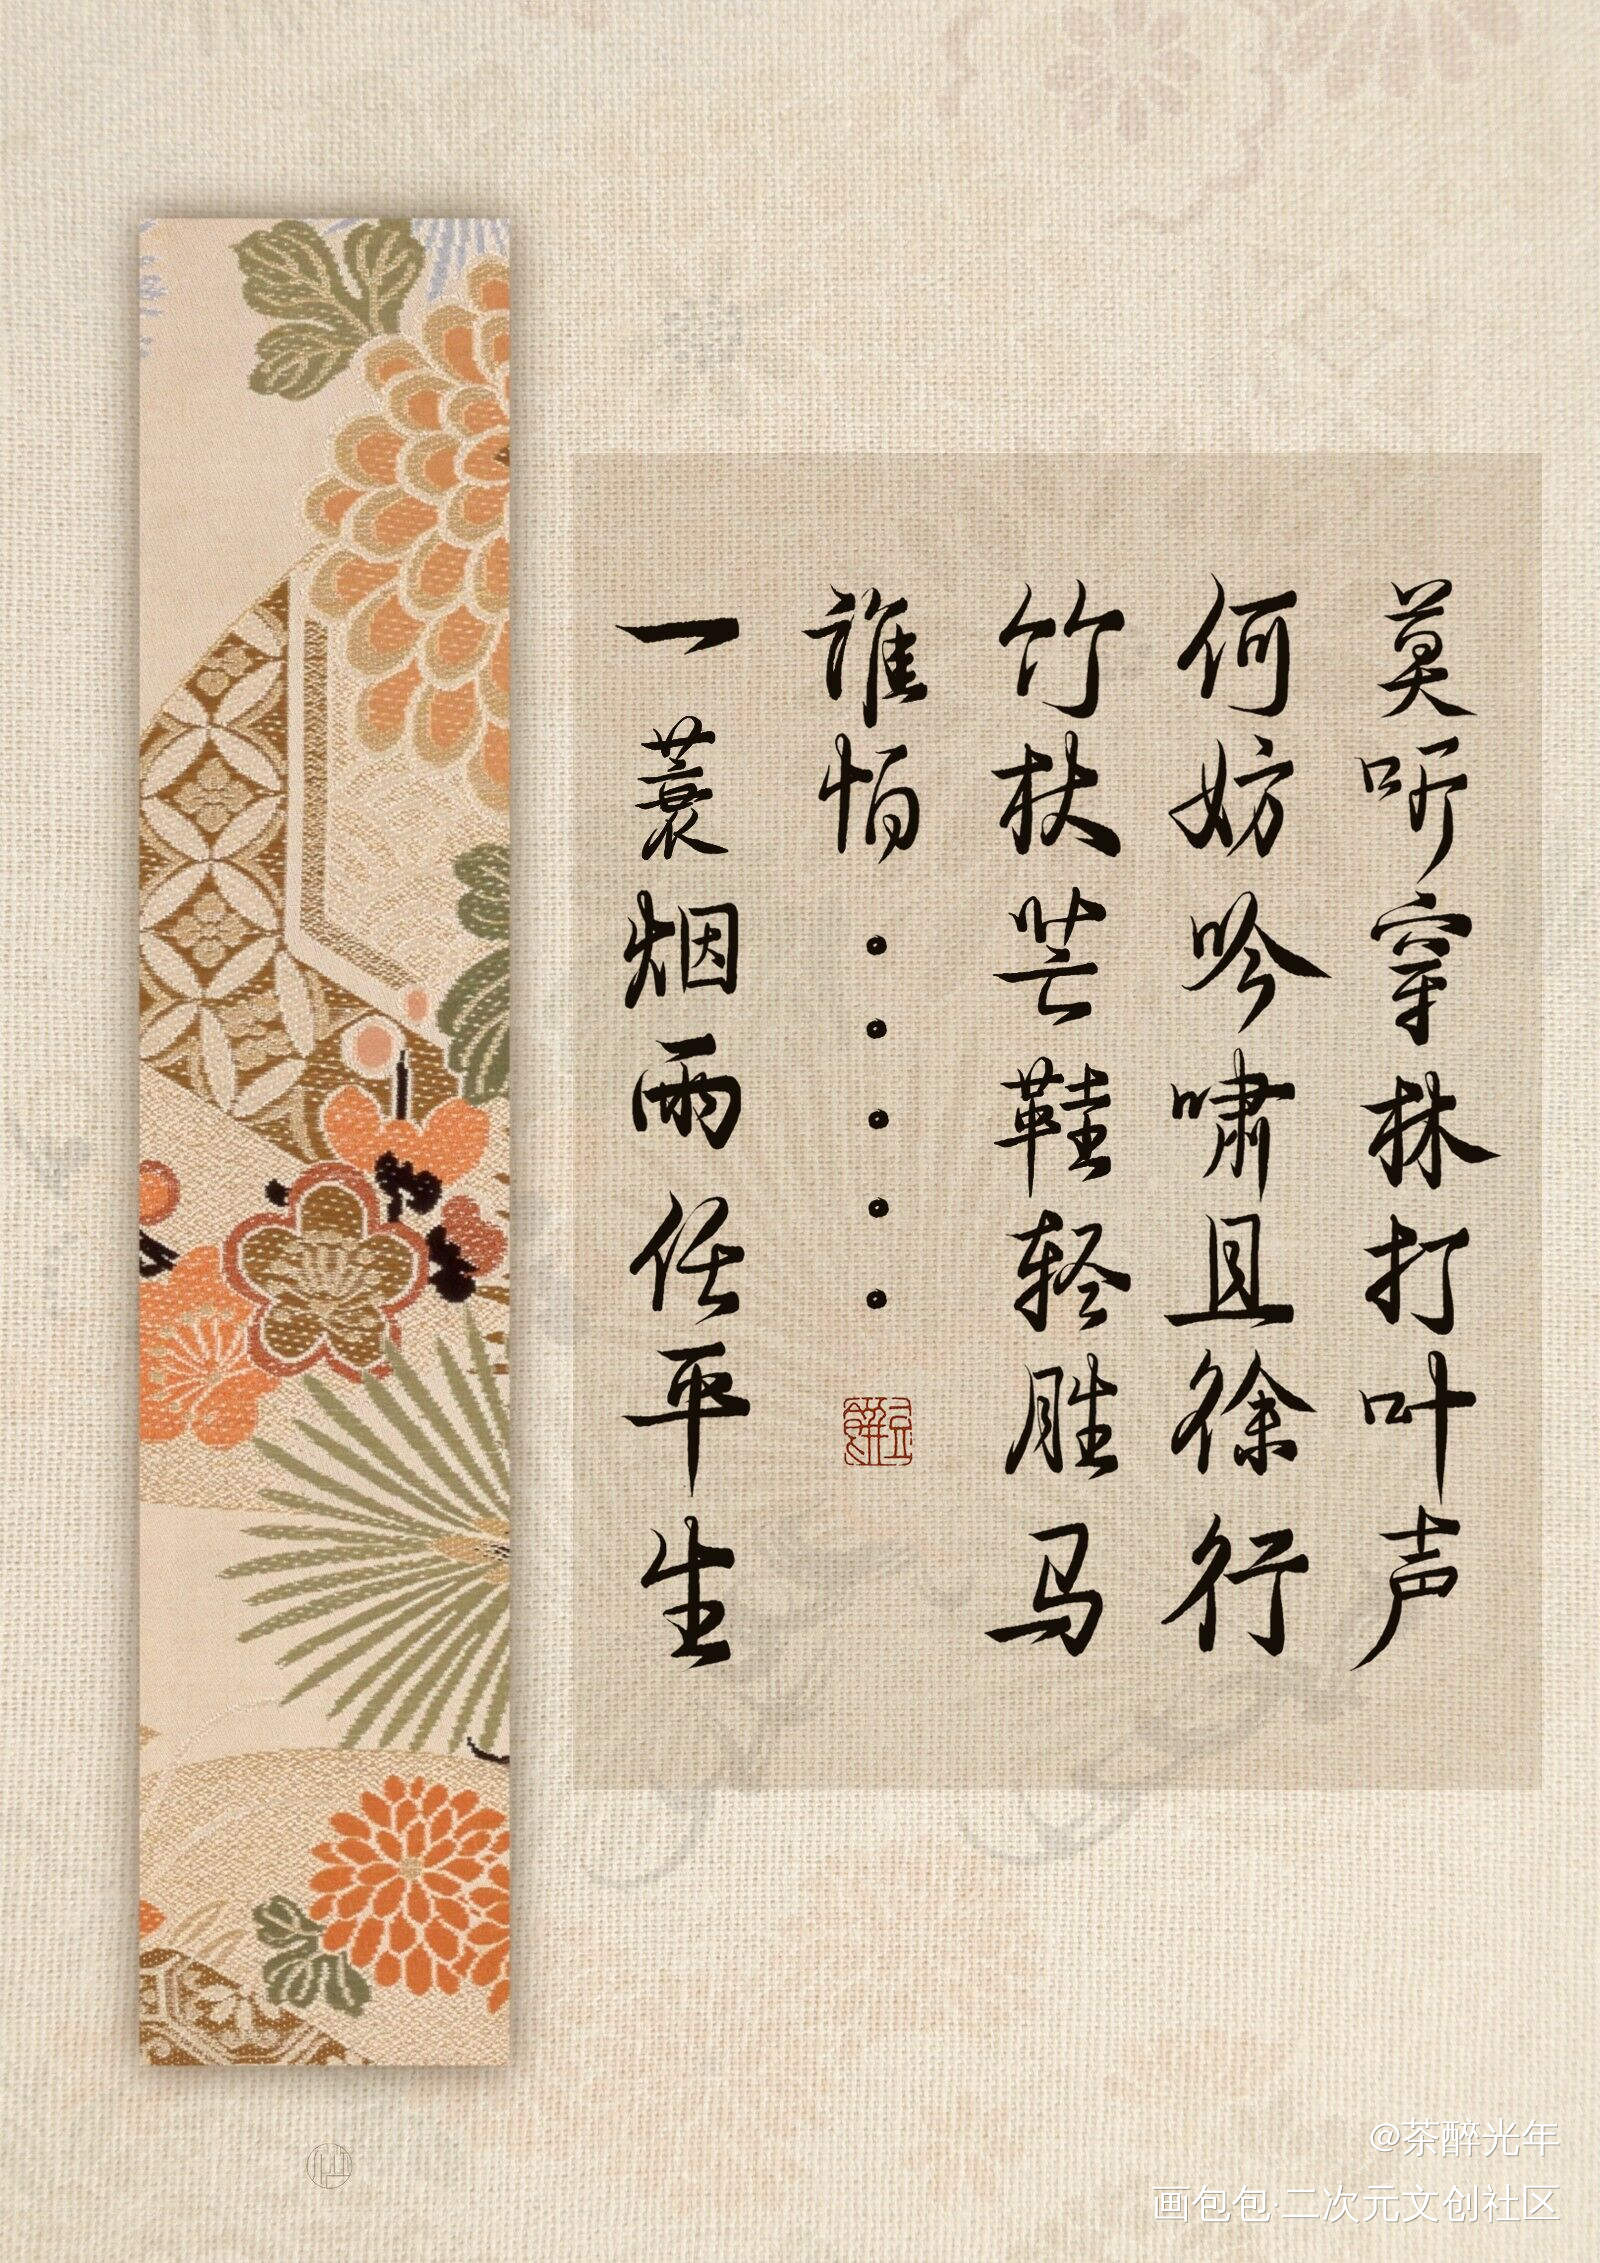 莫听穿林打叶声
何妨吟啸且徐行
竹杖芒鞋轻胜马
谁怕。。。。。
一蓑烟雨任平生
@茶醉光年
画包包·二次元文创社区